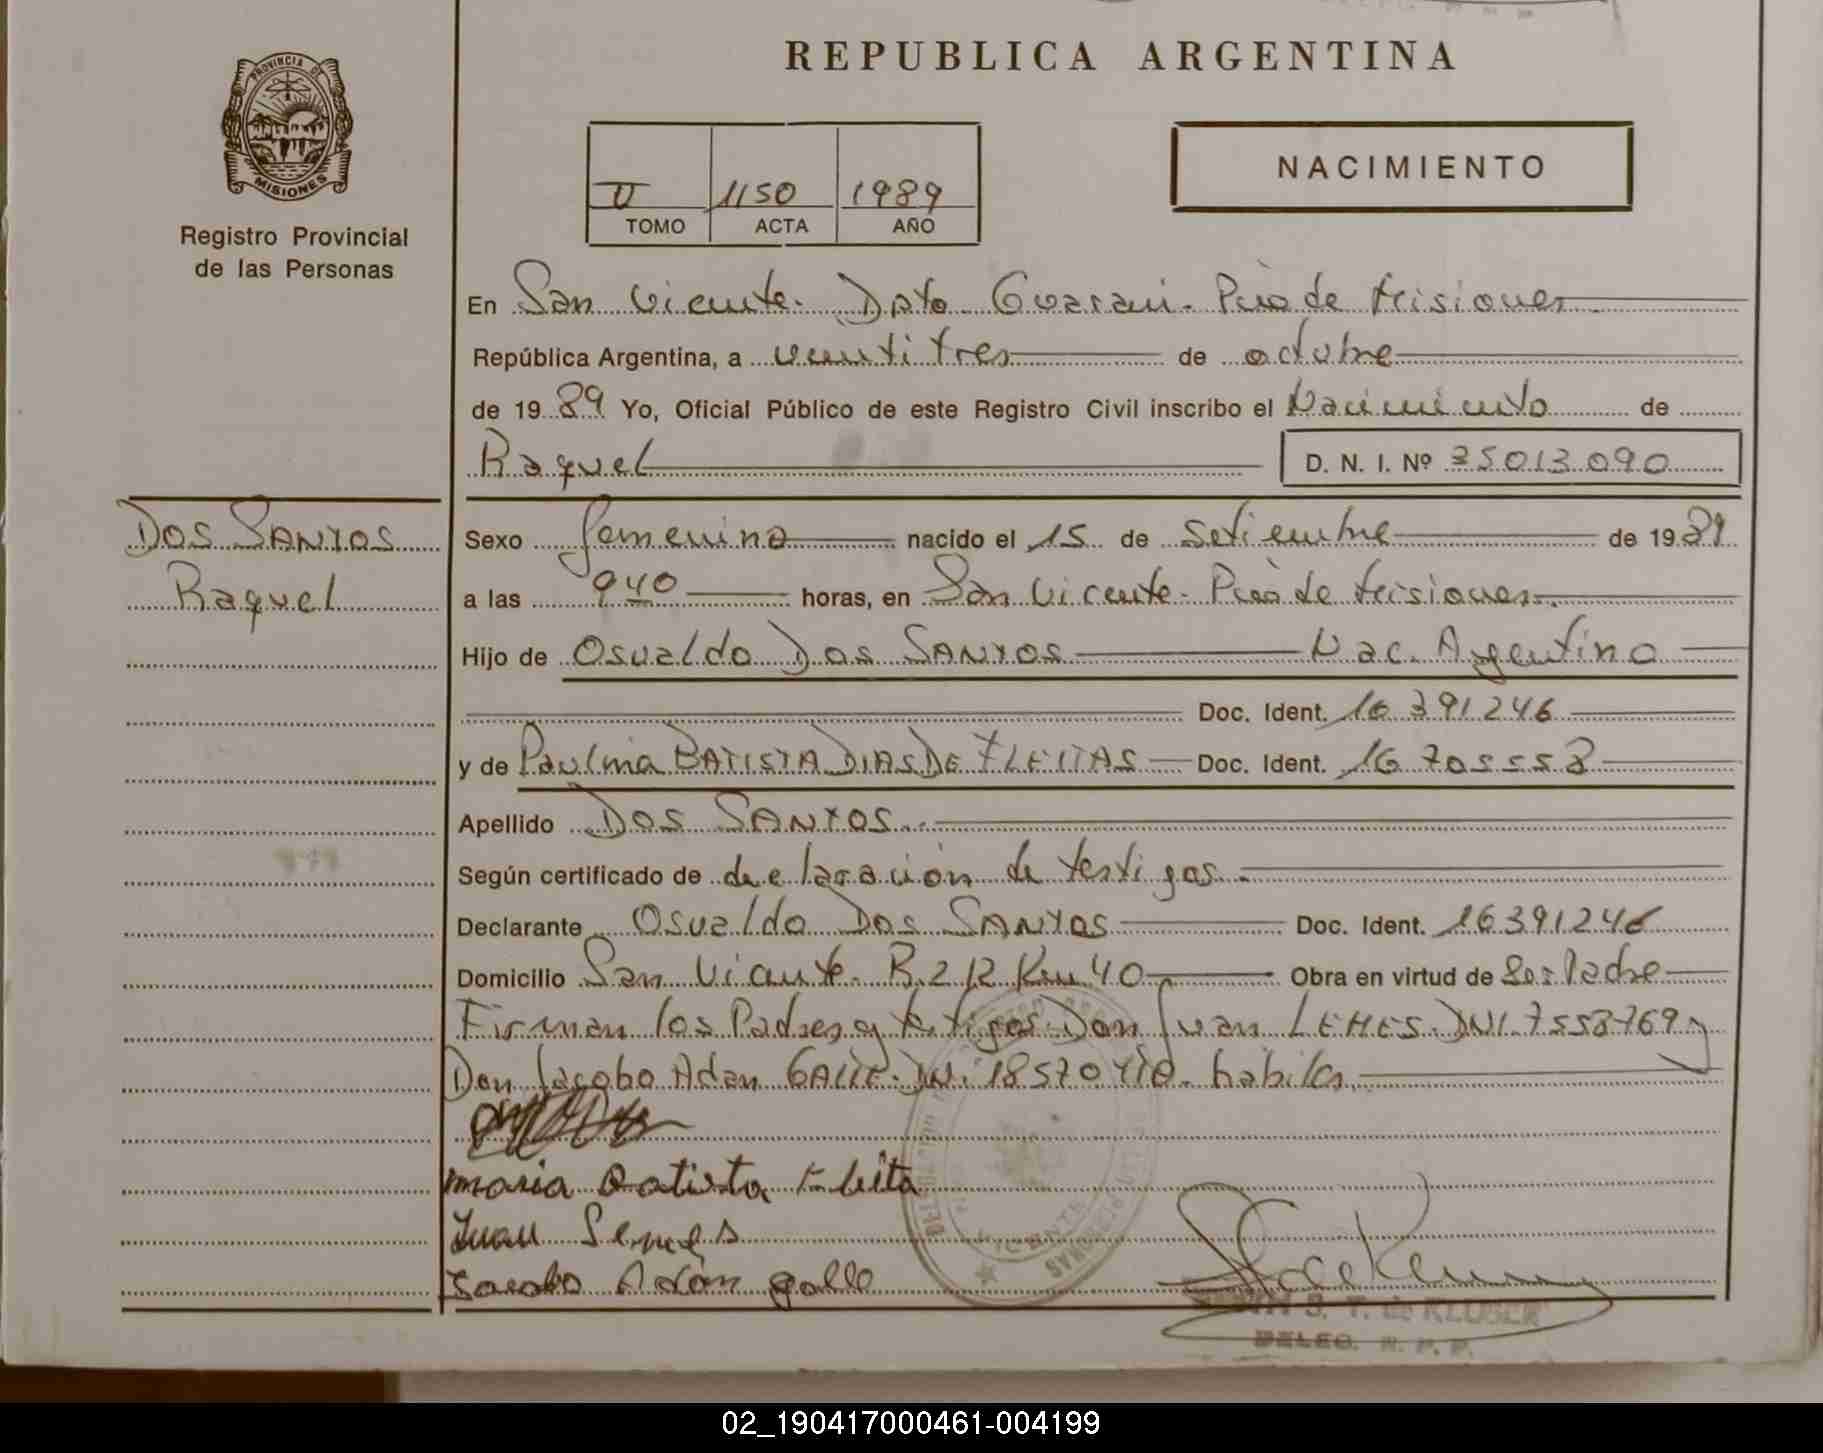 REPUBLICA ARGENTINA
PROVINCIA DE
MISIONES
Registro Provincial
de las Personas
II 1150 1989
TOMO ACTA AÑO
NACIMIENTO
En San Vicente. Dpto Guarani. Pcia de Misiones
República Argentina, a veintitres de octubre
de 1989 Yo, Oficial Público de este Registro Civil inscribo el Nacimiento de
Raquel D. N. I. Nº 35013090
DOS SANTOS
Raquel
Sexo femenino nacido el 15 de Setiembre de 1989
a las 940 horas, en San Vicente. Pcia de Misiones.
Hijo de Osvaldo DOS SANTOS Nac. Argentino
Doc. Ident. 16 391246
y de Paulina BATISTA DIAS DE FLEITAS Doc. Ident. 16 705558
Apellido DOS SANTOS.
Según certificado de declaración de testigos.
Declarante Osvaldo DOS SANTOS Doc. Ident. 16391246
Domicilio San Vicente. R. 212 Km 40 Obra en virtud de Ser Padre
Firman los Padres y testigos Don Juan LEMES. DNI. 7558769 y
Don Jacobo Adan DNI. 18570 habiles.
maria Batista Fleita
Juan Lemes
Jacobo Adan gallo
S. T. de KLUSER
DELEG. R. P. P.
02_190417000461-004199